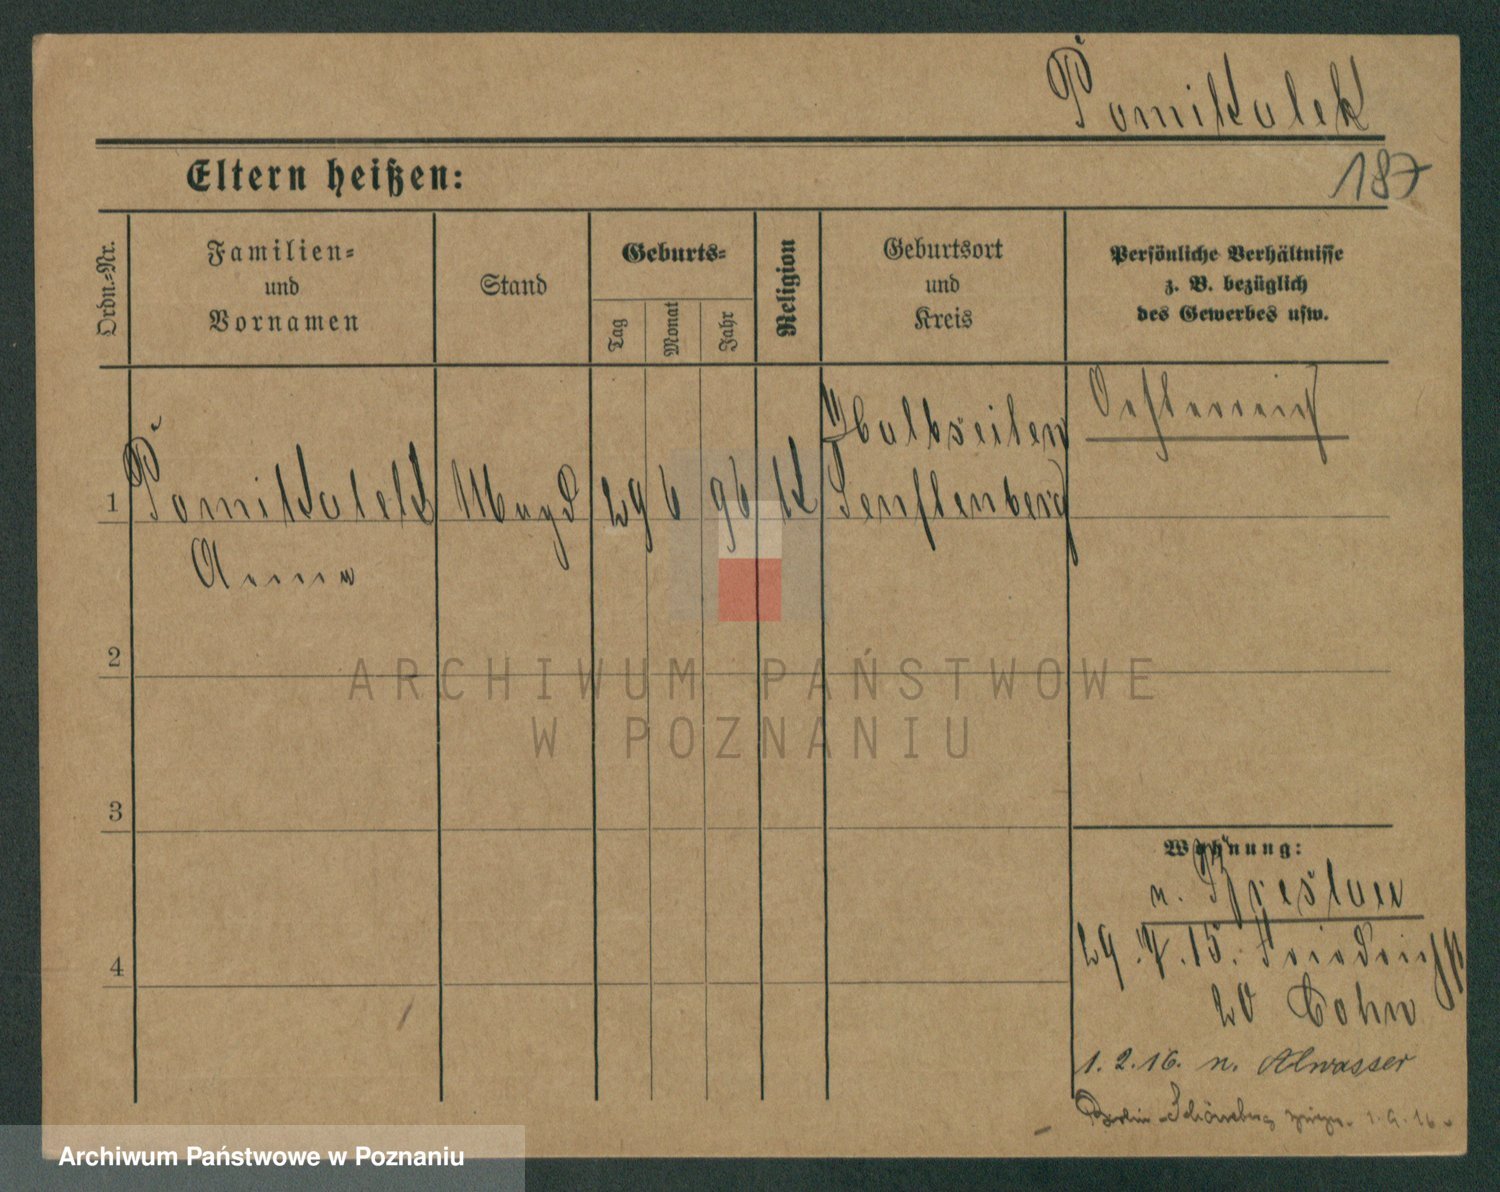 Pomikalek
187
Eltern heißen:
Ordn.-Nr.
Familien-
und
Vornamen
Stand
Geburts-
Tag
Monat
Jahr
Religion
Geburtsort
und
Kreis
Persönliche Verhältnisse
z. B. bezüglich
des Gewerbes usw.
1
Pomikalek
Anna
Magd
29 6 96
K
Halbseiten
Senftenberg
Oesterreich
2
3
4
Wohnung:
n. Breslau
29.7.15. Friedrichst
20 Cohn
1.2.16. n. Alwasser
Berlin-Schöneberg 1.9.16.
ARCHIWUM PAŃSTWOWE
W POZNANIU
Archiwum Państwowe w Poznaniu